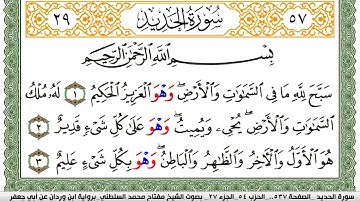 ٥٧ سُورَةُ الحَدِيدِ ٢٩
بِسْمِ اللَّهِ الرَّحْمَٰنِ الرَّحِيمِ
سَبَّحَ لِلَّهِ مَا فِي السَّمَٰوَٰتِ وَالْأَرْضِ وَهْوَ الْعَزِيزُ الْحَكِيمُ ١ لَهُ مُلْكُ
السَّمَٰوَٰتِ وَالْأَرْضِ يُحْيِۦ وَيُمِيتُ وَهْوَ عَلَىٰ كُلِّ شَيْءٍ قَدِيرٌ ٢
هُوَ الْأَوَّلُ وَالْآخِرُ وَالظَّٰهِرُ وَالْبَاطِنُ وَهْوَ بِكُلِّ شَيْءٍ عَلِيمٌ ٣
سورة الحديد _ الصفحة ٥٣٧ _ الحزب ٥٤ _ الجزء ٢٧ _ بصوت الشيخ مفتاح محمد السلطني _ برواية ابن وردان عن ابي جعفر